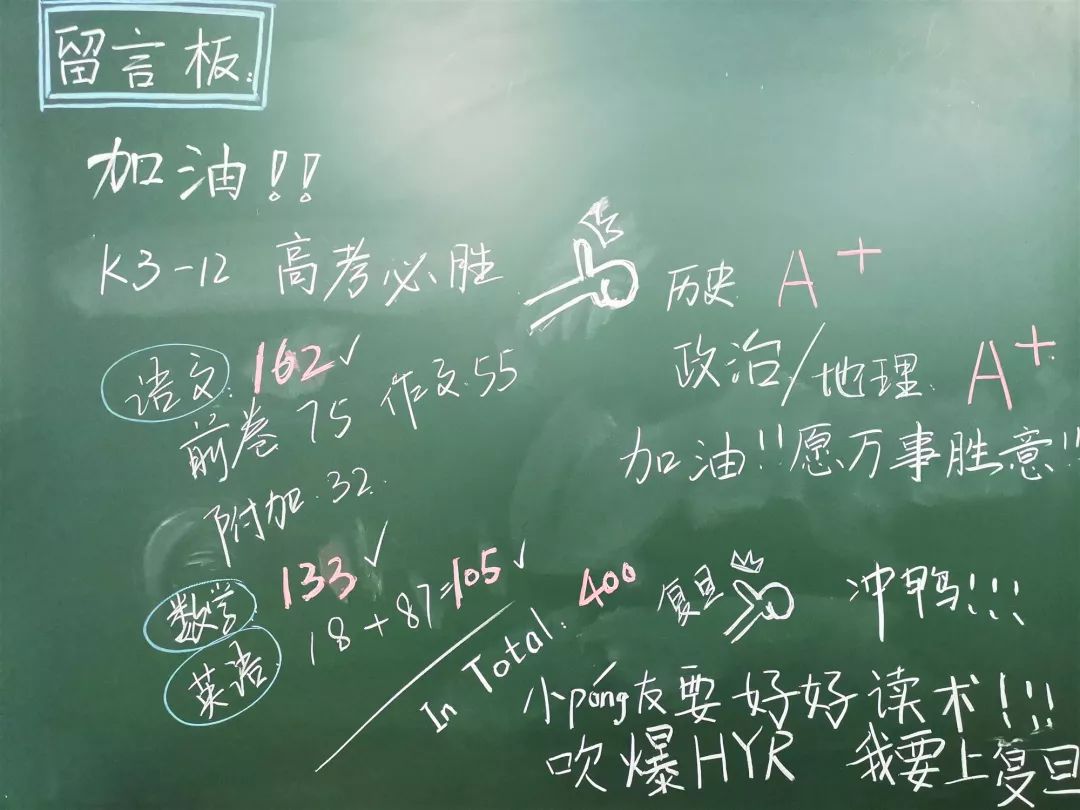 留言板:
加油!!
K3-12 高考必胜
历史 A+
语文: 162✓
政治/地理 A+
前卷 75 作文:55
加油!!愿万事胜意!!
附加:32
数学: 133✓
英语 18+87=105✓
In Total: 400
复旦 冲鸭!!!
小póng友要好好读术!!!
吹爆HYR 我要上复旦